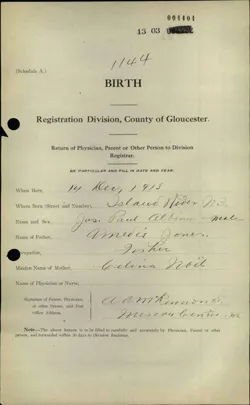 004404
13 03
1144
(Schedule A.)
BIRTH
Registration Division, County of Gloucester.
Return of Physician, Parent or Other Person to Division
Registrar.
BE PARTICULAR AND FILL IN DATE AND YEAR.
When Born, 14 Dec, 1913
Where Born (Street and Number), Island River N.B.
Name and Sex, Jos. Paul Albini - male
Name of Father, Amedie Jones
Occupation, Fisher
Maiden Name of Mother, Celina Noël
Name of Physician or Nurse,
Signature of Parent, Physician
or other Person, and Post
office Address,
Miscou Centre, NB
NOTE.—The above is to be filled in carefully and accurately by Physician, Parent or other
person, and forwarded within 30 days to Division Registrar.